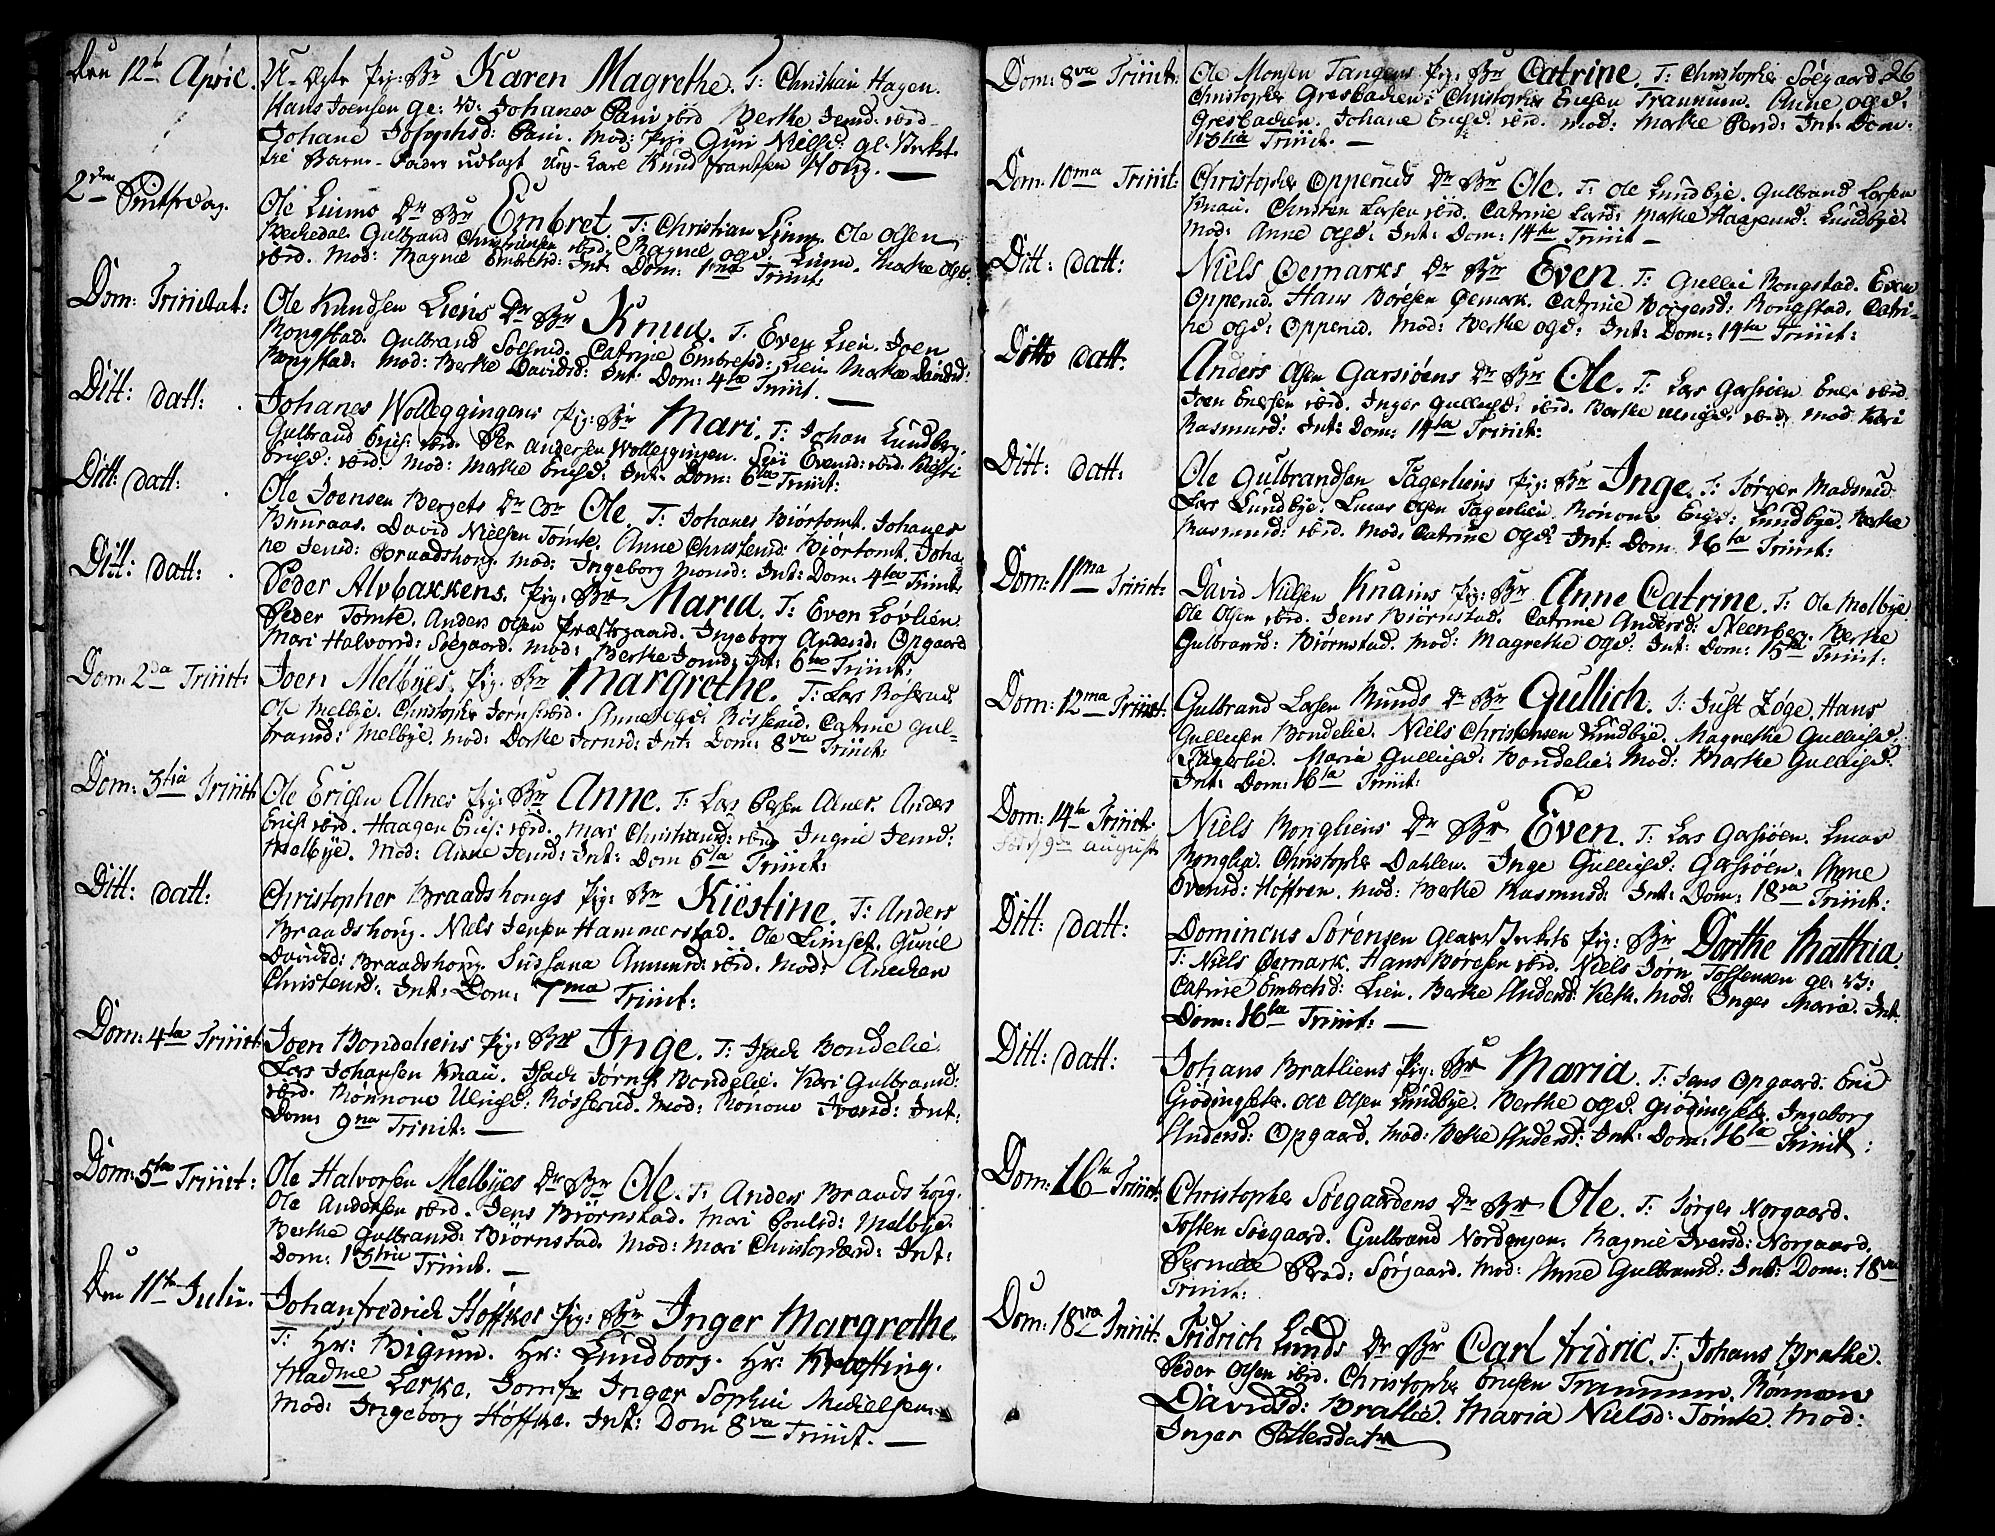 Den 12te April. U-Ægte Pig: Br Karen Magrethe. T: Christian Hagen.
Hans Joensen ge: V: Johanes Pain ibid Berthe Jensd: ibid
Johane Josephsd: Pain. Mod: Pig: Guri Nielsd: gl. Verket
til Barne-Fader udlagt Ung-Karl Knud Frantsen Holig.
2den Pintsedag. Ole Liums Dr Br Embret. T: Christian Lium. Ole Olsen
Bechedal. Gulbrand Christiansen ibid. Ragnil ogd. Lium. Marthe Olsd:
ibid. Mod: Magnil Embretsd: Int: Dom: 1ma Trinit:
Dom: Trinitat: Ole Knudsen Liens Dr Br Knud. T. Even Lien. Joen
Rongstad. Gulbrand Solsrud. Catrine Embretsd: Lien Marthe Davidsd:
Rongstad: Mod: Berthe Davidsd: Int: Dom: 4ta Trinit.
Ditt: Datt: Johanes Wolleggingens Pig: Br Mari. T: Johan Lundberg.
Gulbrand Erics: ibid. Per Andersen Wolleggingen. Siri Evensd: ibid. Kiersti
Erichsd: ibid. Mod: Marthe Erichsd: Int. Dom: 6ta Trinit:
Ditt: Datt: Ole Joensen Bergets Dr Br Ole. T: Johanes Biørtomt. Johanes
Buuraas. David Nielsen Tømte. Anne Christensd: Biørtomt. Joha-
ne Jensd: Braadshoug. Mod: Ingeborg Monsd: Int: Dom: 4ta Trinit:
Ditt: Datt: Peder Alvbakkens. Pig: Br Maria. T: Even Løvlien.
Peder Tømte. Anders Olsen Præstegaard. Ingeborg Andersd: Opgaard
Mari Halvorsd: Søegaard. Mod: Berthe Jonsd: Int: 6ta Trinit:
Dom: 2da Trinit: Joen Melbyes. Pig. Br Margrethe. T: Lars Rosserud.
Ole Melbye. Christopher Jørns: ibid. Anne ogd: Rosserud. Catrine Gul-
bransd: Melbye. Mod: Dorthe Jørnsd: Int: Dom: 8va Trinit:
Dom: 3tia Trinit: Ole Ericsen Alnes Pig: Br Anne. T: Lars Persen Alnes. Anders
Erics: ibid. Haagen Erics: ibid. Mari Christiansd: ibid. Ingrie Jensd:
Melbye. Mod: Anne Jensd: Int: Dom 6ta Trinit:
Ditt: Datt: Christopher Braadshougs Pig: Br Kiestine. T: Anders
Braadshoug. Niels Jensen Hammerstad. Ole Limset. Gunil
Davidsd: Braadshoug. Susana Amunsd: ibid. Mod: Anechen
Christensd: Int: Dom: 7ma Trinit:
Dom: 4ta Trinit: Joen Bondeliens Pig: Br Inge. T: Isach Bondelie.
Lars Johansen Knai. Isach Jørns: Bondelie. Kari Gulbransd:
ibid. Rønnoue Ulrichsd: Rosserud. Mod: Rønoue Iversd: Int:
Dom: 9na Trinit:
Dom: 5ta Trinit: Ole Halvorsen Melbyes Dr Br Ole. T: Anders Braadshoug.
Ole Andersen ibid. Jens Biørnstad. Mari Poulsd: Melbye.
Berthe Gulbransd: Biørnstad. Mod: Mari Christophersd: Int:
Dom: 13tia Trinit.
Den 11te Julii. Johanfredrich Høffkes Pig: Br Inger Margrethe.
T: Hr: Bigum. Hr: Lundborg. Hr: Kræfting.
Madme Lerke. Jomfr Inger Sophia Michelsen.
Mod: Ingeborg Høffke. Int: Dom 8va Trinit.
26
Dom: 8va Trinit: Ole Monsen Tangens Pig: Br Catrine. T: Christopher Søegaard
Christopher Gresbachen. Christopher Ericsen Trannum. Anne ogd:
Gresbachen. Johane Ericsd: ibid. Mod: Marthe Persd: Int: Dom:
13tia Trinit.
Dom: 10ma Trinit: Christopher Opperuds Dr Br Ole. T: Ole Lundbye. Gulbrand Larsen
Knai. Christen Larsen ibid. Catrine Larsd: Marthe Haagensd: Lundbye.
Mod: Anne Ogd: Int: Dom: 14ta Trinit
Ditt: Datt: Niels Oemarks Dr Br Even. T: Gullic Rongstad. Even
Opperud. Hans Børesen Oemark. Catrine Børgersd: Rongstad. Catri-
ne ogd: Opperud. Mod: Berthe ogd: Int: Dom: 14ta Trinit:
Ditto Datt: Anders Olsen Garsiøens Dr Br Ole. T: Lars Garsiøen. Eric ibid.
Joen Ericsen ibid. Inger Gullichsd: ibid. Berthe Ulrichsd: ibid. Mod Kari
Rasmusd: Int: Dom: 14ta Trinit:
Ditt: Datt: Ole Gulbrandsen Fagerliens Pig: Br Inge. T: Jørger Madsrud.
Lars Lundbye. Lucas Olsen Fagerlien. Rønoue Ericsd: Lundbye. Berthe
Rasmusd: ibid. Mod. Catrine Ogd: Int: Dom: 16ta Trinit:
Dom: 11ma Trinit: David Nielsen Knains Pig: Br Anne Catrine. T: Ole Melbye.
Ole Olsen ibid. Jens Biørnstad. Catrine Andersd: Steenberg. Berthe
Gulbransd: Biørnstad. Mod: Magrethe Ogd: Int: Dom: 15ta Trinit:
Dom: 12ma Trinit: Gulbrand Larsen Hunds Dr Br Gullich. T: Just Zøge. Hans
Gullichsen Bondelie. Niels Christensen Lundbye. Magrethe Gullichsd:
Fagerlie. Maria Gullichsd: Bondelie. Mod: Marthe Gullichsd:
Int: Dom: 16ta Trinit:
Dom: 14ta Trinit. Niels Rongliens Dr Br Even. T: Lars Garsiøen. Lucas
født 9de august
Ronglie. Christopher Dahlen. Inge Gullichsd: Garsiøen. Anne
Evensd: Hoffren. Mod: Berthe Rasmusd: Int: Dom: 18va Trinit:
Ditt: Datt: Domincus Sørensen Glasverkets Pig: Br Dorthe Mathia.
T: Niels Oemark. Hans Børesen ibid. Niels Jørn Tostensen gl: V:
Catrine Embretsd: Lien. Berthe Andersd: Kleth. Mod: Inger Maria. Int:
Dom: 16ta Trinit:
Ditt: Datt: Johans Bratliens Pig: Br Maria. T: Jens Opgaard. Eric
Giødingsete. Ole Olsen Lundbye. Berthe Ogd. Giødingsete. Ingeborg
Andersd: Opgaard. Mod: Berthe Andersd: Int: Dom: 16ta Trinit:
Dom: 16ta Trinit: Christopher Søegaardens Dr Br Ole. T: Jørger Norgaard.
Tosten Søegaard. Gulbrand Nordengen. Ragnil Iversd: Norgaard.
Pernille Persd: Sørgaard. Mod: Anne Gulbransd: Int: Dom: 18va
Trinit:
Dom: 18va Trinit: Fridrich Lunds Dr Br Carl fridric. T: Johans Brathe.
Peder Olsen ibid. Christopher Ericsen Trannum. Rønnoue
Davidsd: Bratlie. Maria Nielsd: Tømte. Mod:
Inger Pettersdatr